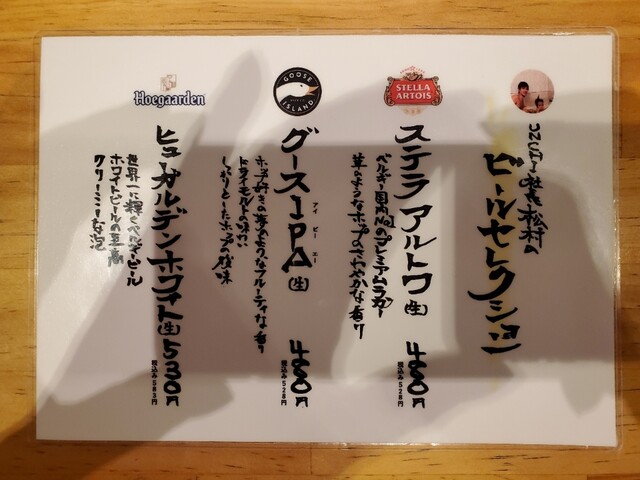 社長松村の
ビールセレクション
STELLA
ARTOIS
ステラアルトワ(生) 480円
税込み528円
ベルギー国内No.1のプレミアムラガー
草のようなホップのさわやかな香り
GOOSE
ISLAND
グースIPA(生) 480円
アイ ピー エー
税込み528円
ホップ好きの夢のようなフルーティな香り
ドライモルトの味わい
しっかりとしたホップの後味
Hoegaarden
ヒューガルデンホワイト(生)530円
税込み583円
世界一に輝くベルギービール
ホワイトビールの王
クリーミーな泡